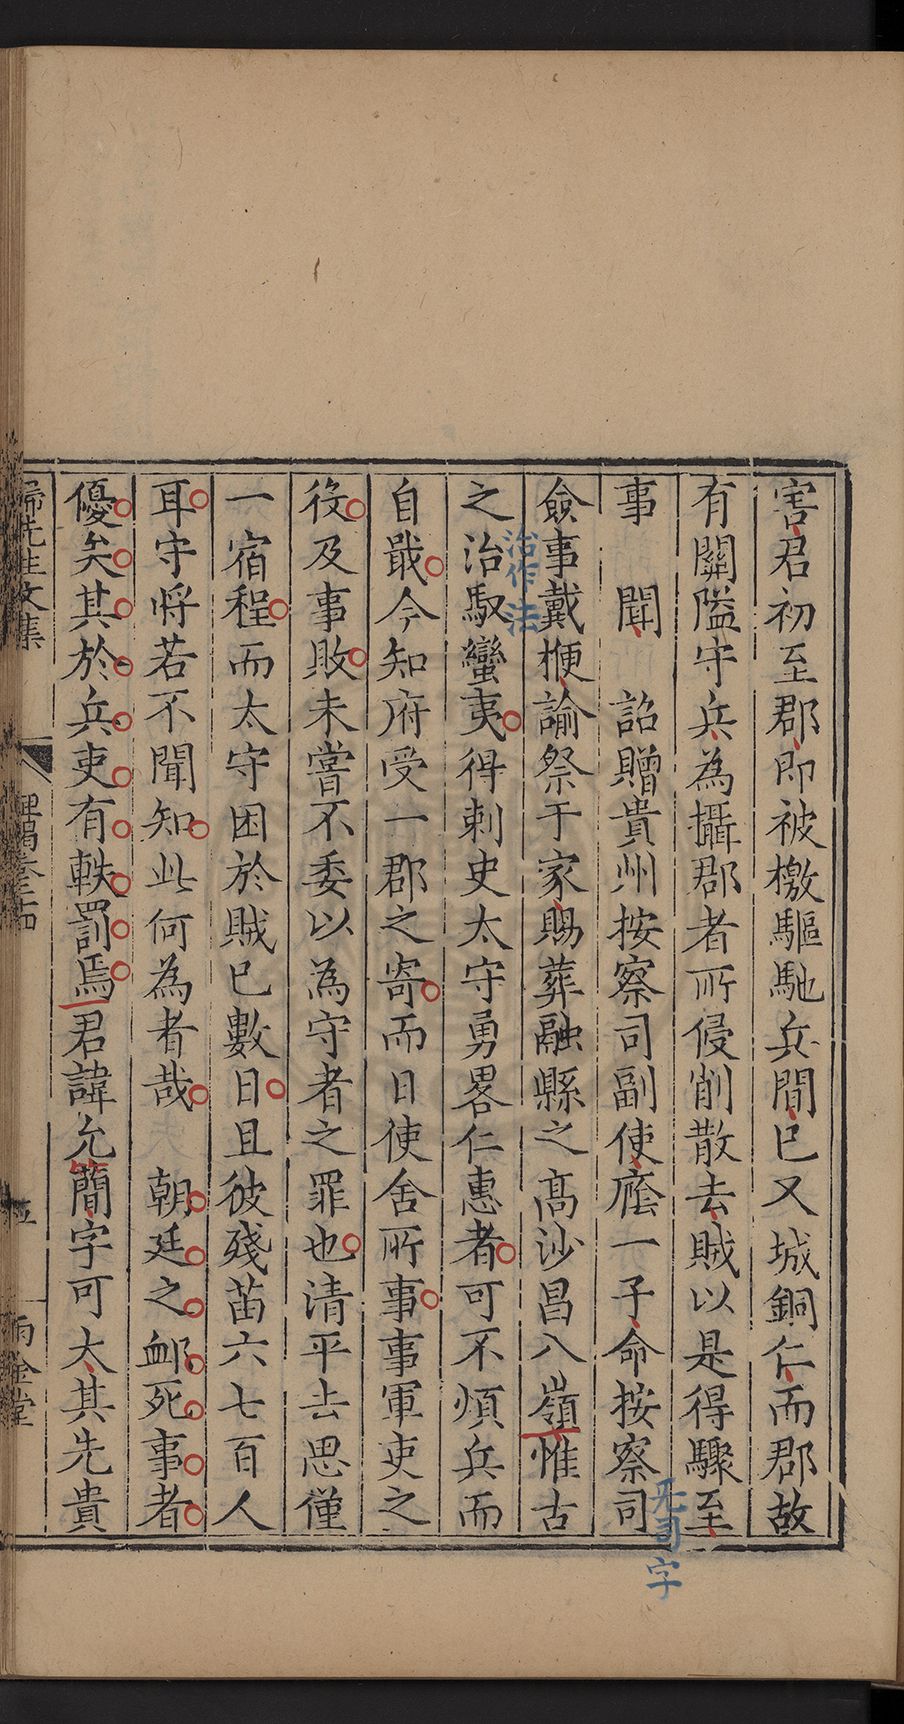 害君初至郡即被檄驅馳兵間已又城銅仁而郡故
有關隘守兵為攝郡者所侵削散去賊以是得驟至
事 聞 詔贈貴州按察司副使廕一子命按察司
僉事戴楩諭祭于家賜葬融縣之髙沙昌八嶺惟古
之治馭蠻夷得刺史太守勇畧仁惠者可不煩兵而
自戢今知府受一郡之寄而日使舍所事事軍吏之
役及事敗未嘗不委以為守者之罪也清平去思僅
一宿程而太守困於賊已數日且彼殘苗六七百人
耳守將若不聞知此何為者哉 朝廷之卹死事者
優矣其於兵吏有軼罰焉君諱允簡字可大其先貴
歸先生文集
雨金堂
治作法
无司字